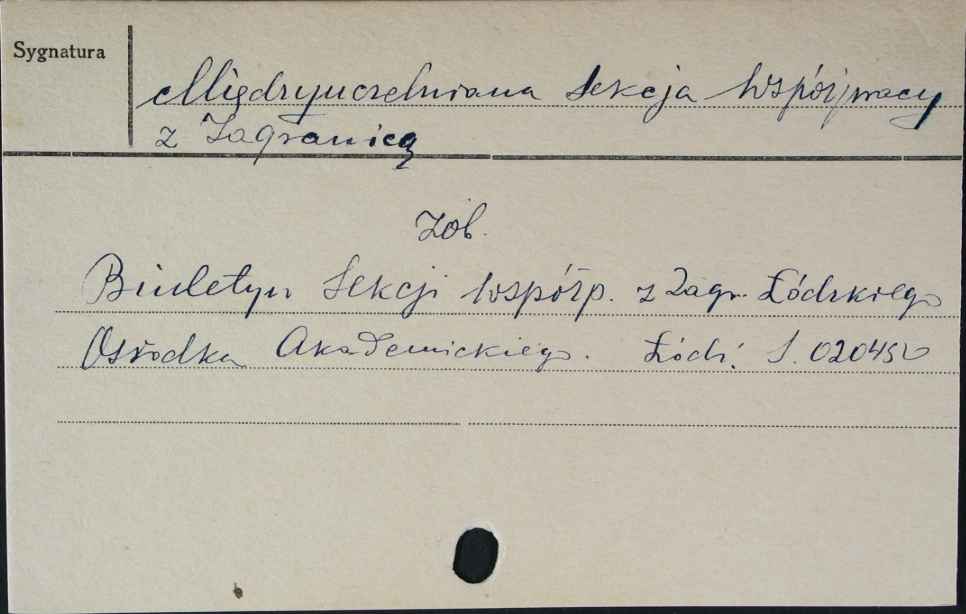 Sygnatura
Międzyuczelniana Sekcja Współpracy
z Zagranicą
Zob.
Biuletyn Sekcji Współp. z Zagr. Łódzkiego
Ośrodka Akademickiego. Łódź. S. 020450